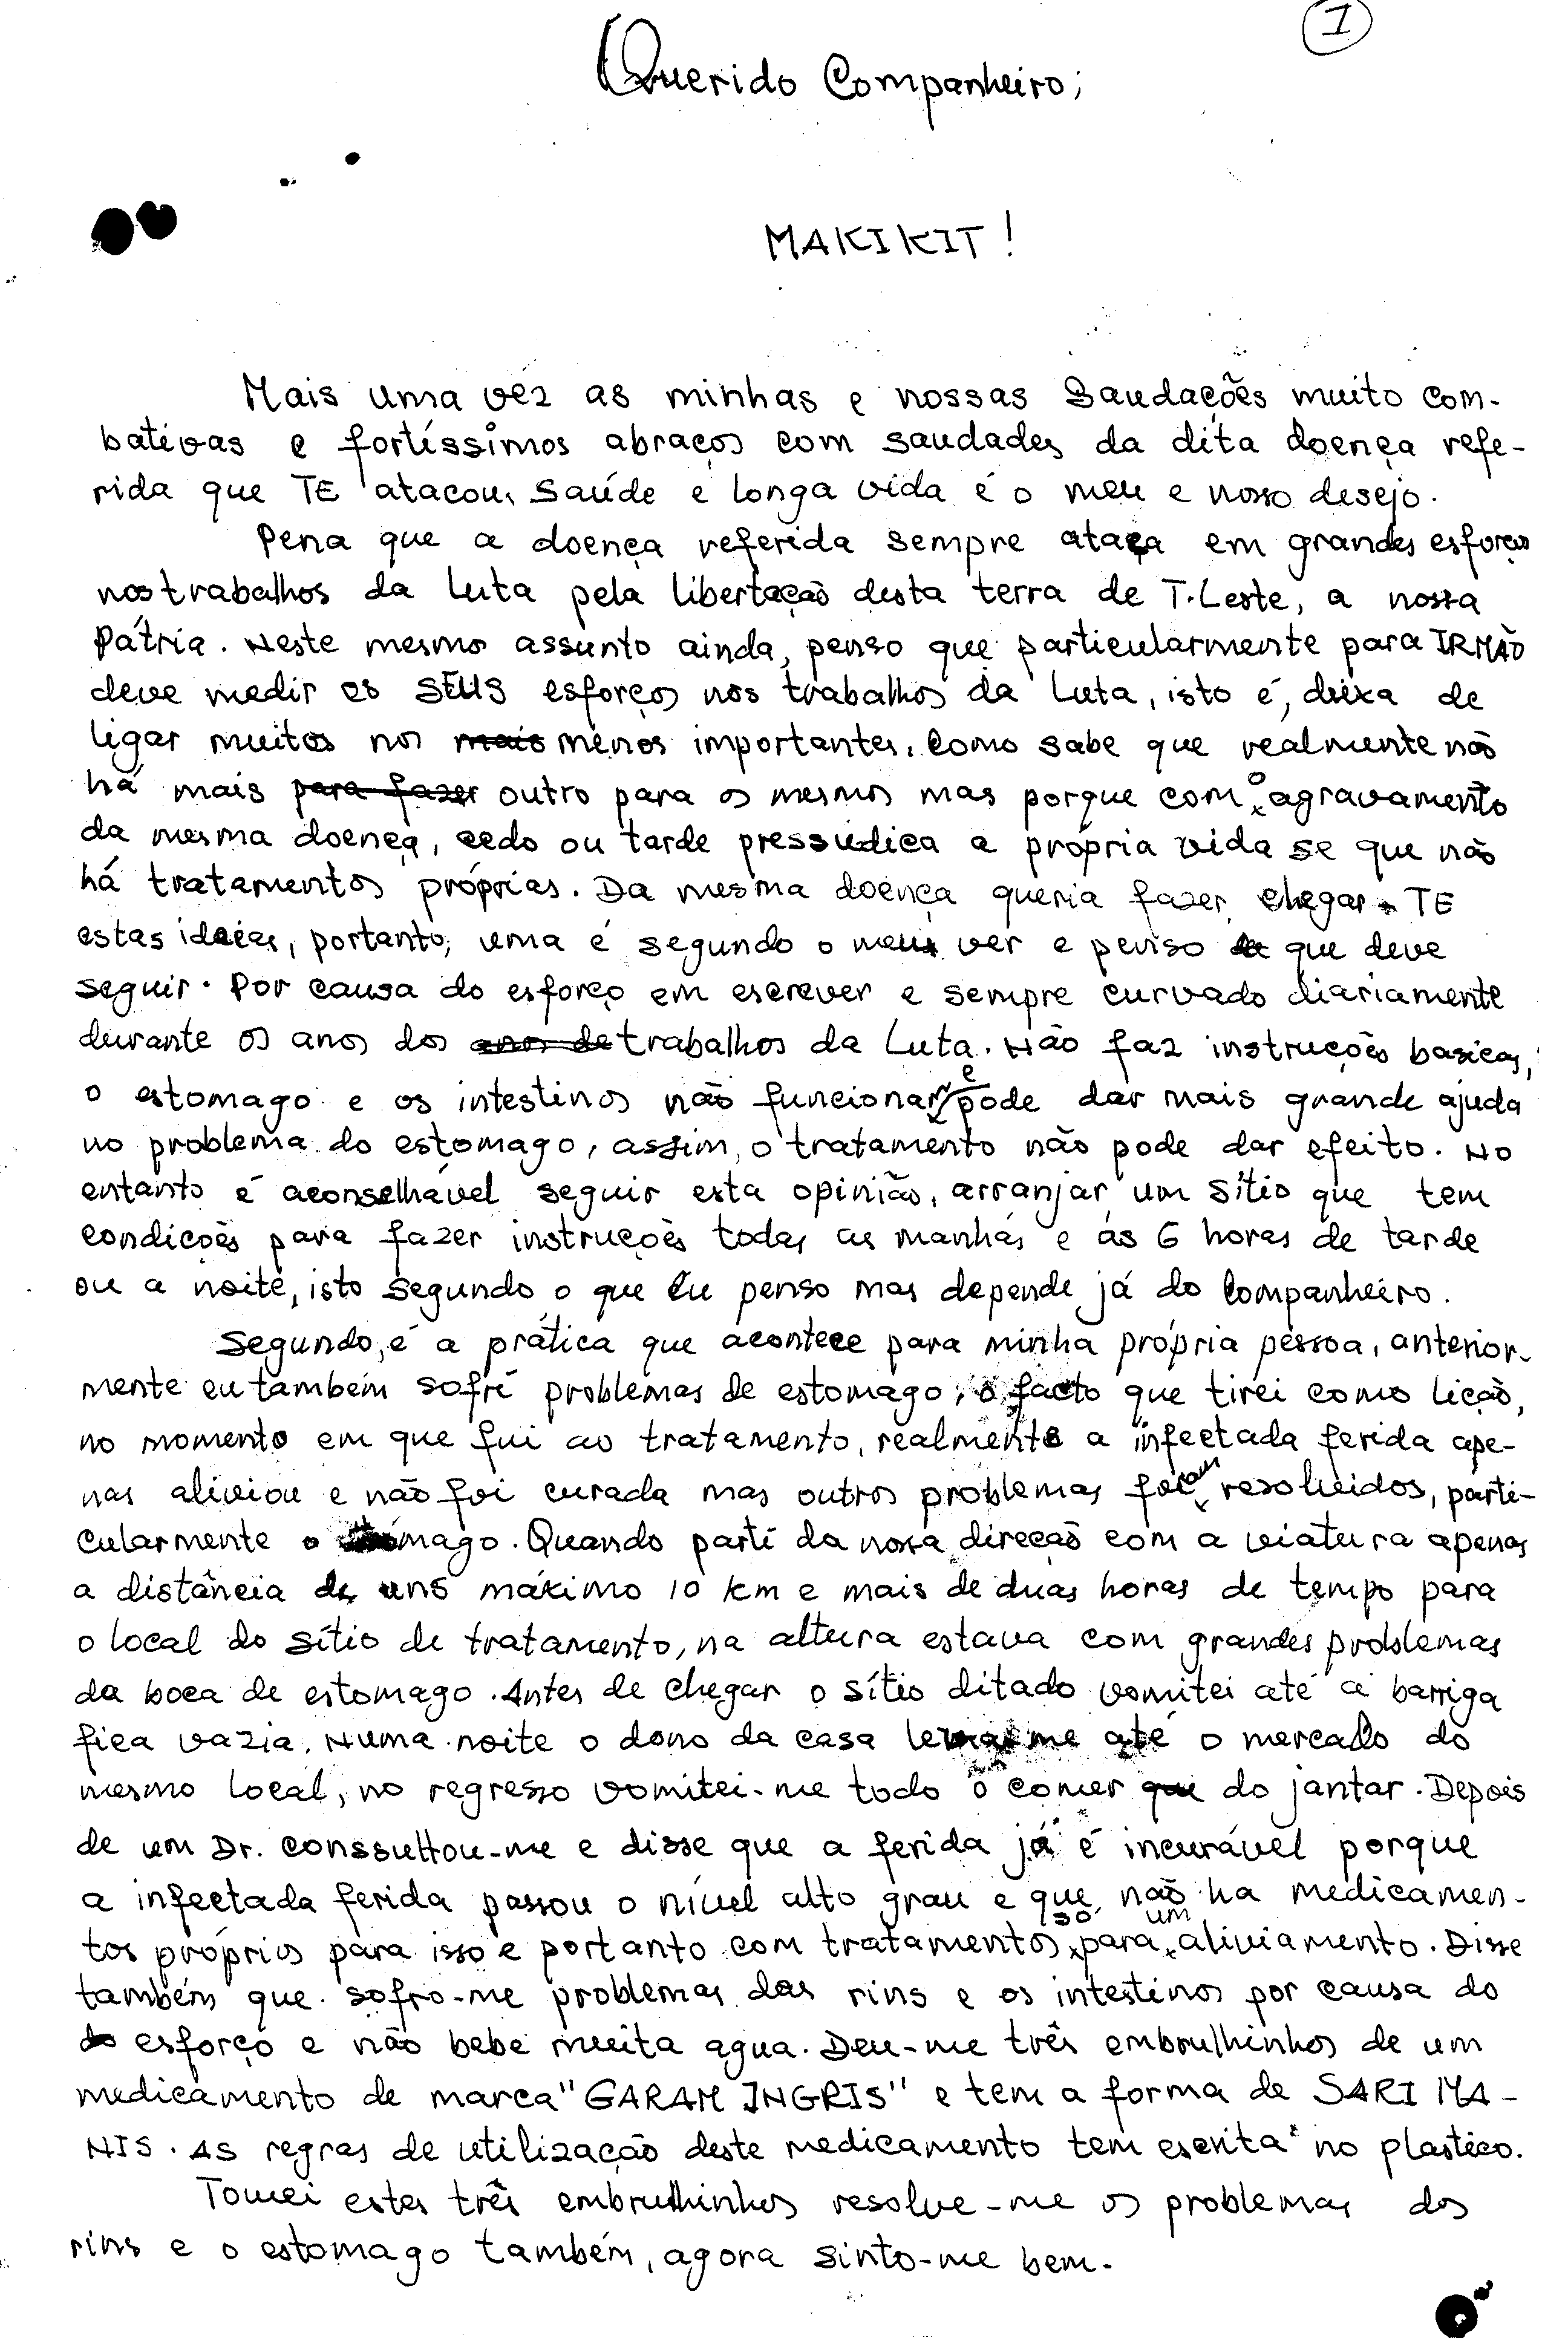 1
Querido Companheiro;
MAKIKIT!
Mais uma vez as minhas e nossas Saudações muito com-
bativas e fortíssimos abraços com saudades da dita doença refe-
rida que TE atacou, Saúde e longa vida é o meu e nosso desejo.
Pena que a doença referida sempre ataca em grandes esforços
nos trabalhos da Luta pela libertação desta terra de T. Leste, a nossa
Pátria. Neste mesmo assunto ainda, penso que particularmente para IRMÃO
deve medir os SEUS esforços nos trabalhos da Luta, isto é, deixa de
ligar muitos nos mais menos importantes. Como sabe que realmente não
há mais para fazer outro para os mesmos mas porque com o agravamento
da mesma doença, cedo ou tarde pressudica a própria vida se que não
há tratamentos próprias. Da mesma doença queria fazer chegar TE
estas ideias, portanto, uma é segundo o meu ver e penso que deve
seguir. Por causa do esforço em escrever e sempre curvado diariamente
durante os anos dos anos de trabalhos da Luta. Não faz instruções basicas,
o estomago e os intestinos não funcionar e pode dar mais grande ajuda
no problema do estomago, assim, o tratamento não pode dar efeito. No
entanto é aconselhável seguir esta opinião, arranjar um sítio que tem
condições para fazer instruções todas as manhãs e ás 6 horas de tarde
ou a noite, isto segundo o que Eu penso mas depende já do Companheiro.
Segundo, é a prática que acontece para minha própria pessoa, anterior-
mente eu também sofri problemas de estomago, o facto que tirei como lição,
no momento em que fui ao tratamento, realmente a infectada ferida ape-
nas aliviou e não foi curada mas outros problemas foram resolvidos, parti-
cularmente o mago. Quando parti da nossa direcção com a viatura apenas
a distância de uns máximo 10 km e mais de duas horas de tempo para
o local do sítio de tratamento, na altura estava com grandes problemas
da boca de estomago. Antes de chegar o sítio ditado vomitei até a barriga
fica vazia. Numa noite o dono da casa me até o mercado do
mesmo local, no regresso vomitei-me todo o comer que do jantar. Depois
de um Dr. conssultou-me e disse que a ferida já é incurável porque
a infectada ferida passou o nível alto grau e que não ha medicamen-
tos próprios para isso e portanto com tratamentos só para um aliviamento. Disse
também que sofro-me problemas dos rins e os intestinos por causa do
do esforço e não bebe muita agua. Deu-me três embrulhinhos de um
medicamento de marca "GARAM INGRIS" e tem a forma de SARI MA-
NIS. As regras de utilização deste medicamento tem escrita no plastico.
Tomei estes três embrulhinhos resolve-me os problemas dos
rins e o estomago também, agora sinto-me bem.